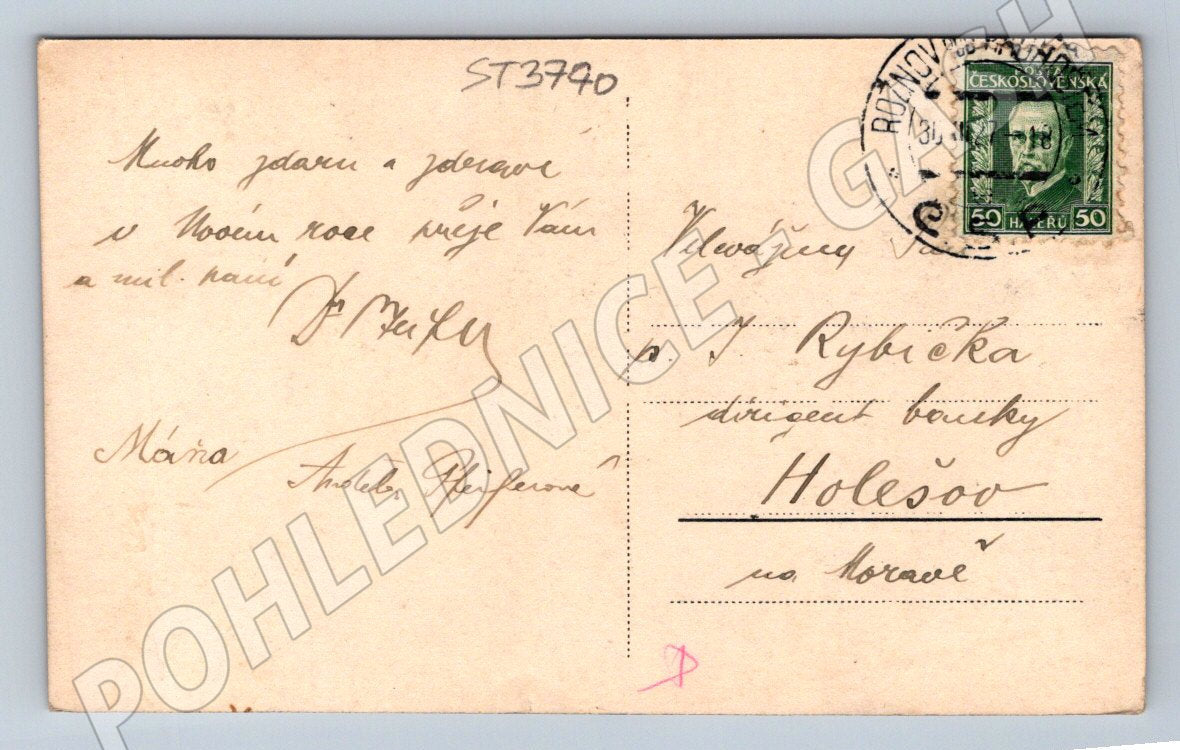 ST3740
Mnoho zdaru a zdraví
v Novém roce přeje Vám
a mil. paní
Dr
Máňa
Pfeiferová
ROŽNOV POD RADHOŠTĚM
30 XII 18
ČESKOSLOVENSKÁ
50 HALÉŘŮ 50
Velevážený
p. J Rybička
dirigent banky
Holešov
na Moravě
POHLEDNICE - GAAH